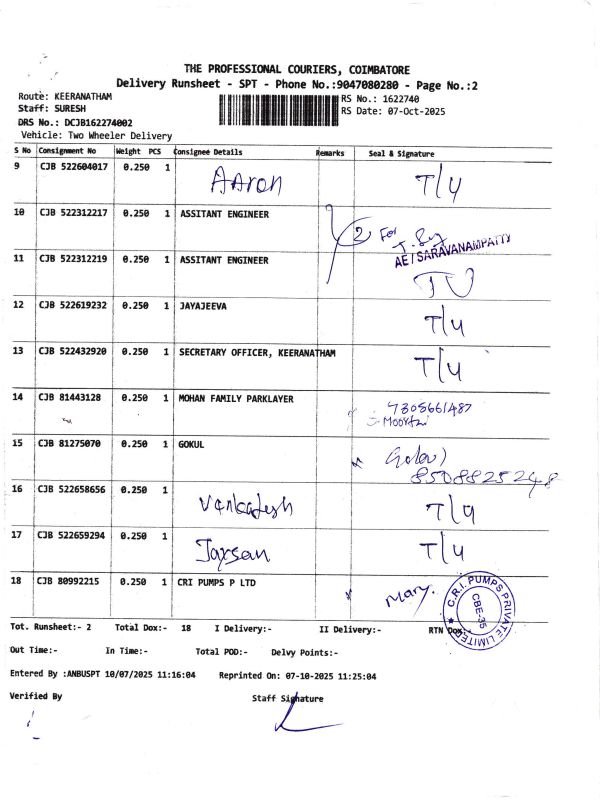 THE PROFESSIONAL COURIERS, COIMBATORE
Delivery Runsheet - SPT - Phone No.:9047080280 - Page No.:2
Route: KEERANATHAM
Staff: SURESH
DRS No.: DCJB162274002
Vehicle: Two Wheeler Delivery
RS No.: 1622740
RS Date: 07-Oct-2025
S No Consignment No Weight PCS Consignee Details Remarks Seal & Signature
9 CJB 522604017 0.250 1 AAron T/4
10 CJB 522312217 0.250 1 ASSITANT ENGINEER 2 For
AE / SARAVANAMPATTY
11 CJB 522312219 0.250 1 ASSITANT ENGINEER
12 CJB 522619232 0.250 1 JAYAJEEVA T/4
13 CJB 522432920 0.250 1 SECRETARY OFFICER, KEERANATHAM T/4
14 CJB 81443128 0.250 1 MOHAN FAMILY PARKLAYER 7305661487
15 CJB 81275070 0.250 1 GOKUL
8508825248
16 CJB 522658656 0.250 1 Venkatesh T/4
17 CJB 522659294 0.250 1 T/4
18 CJB 80992215 0.250 1 CRI PUMPS P LTD Mary.
C.R.I. PUMPS PRIVATE LIMITED
CBE-35
Tot. Runsheet:- 2 Total Dox:- 18 I Delivery:- II Delivery:- RTN Dox:-
Out Time:- In Time:- Total POD:- Delvy Points:-
Entered By :ANBUSPT 10/07/2025 11:16:04 Reprinted On: 07-10-2025 11:25:04
Verified By Staff Signature